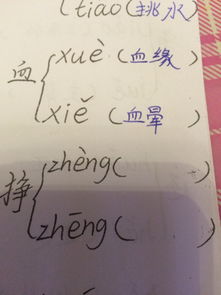 tiāo(挑水)
血
xuè(血缘)
xiě(血晕)
挣
zhèng( )
zhēng( )